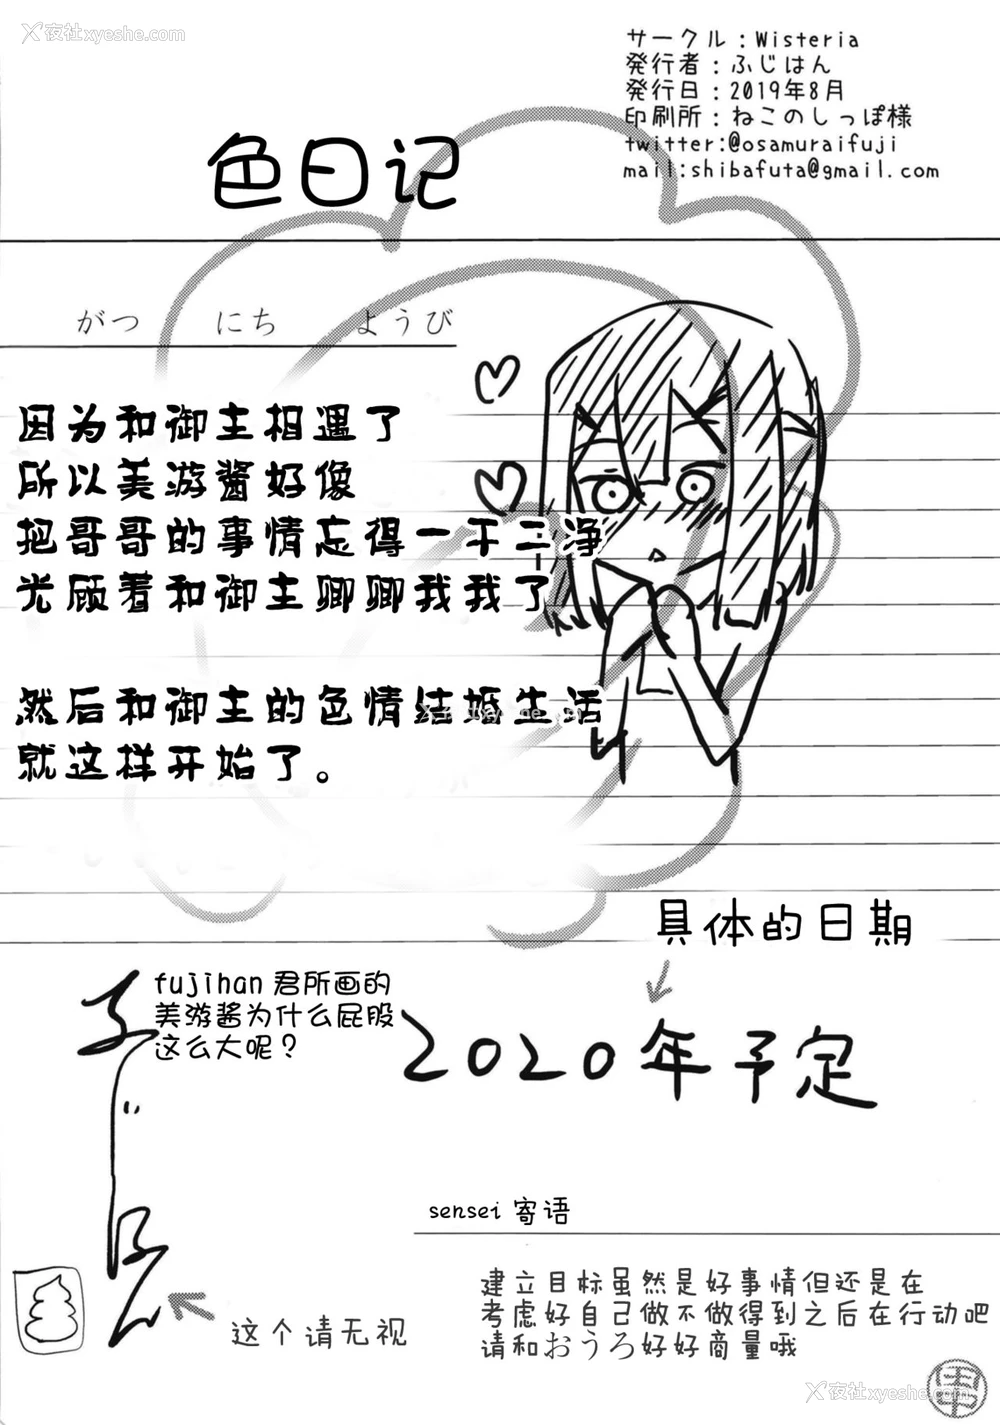 夜社xyeshe.com
サークル：Wisteria
発行者：ふじはん
発行日：2019年8月
印刷所：ねこのしっぽ様
twitter:@osamuraifuji
mail:shibafuta@gmail.com
色日记
がつ にち ようび
因为和御主相遇了
所以美游酱好像
把哥哥的事情忘得一干二净
光顾着和御主卿卿我我了
然后和御主的色情结婚生活
就这样开始了。
具体的日期
fujihan 君所画的
美游酱为什么屁股
这么大呢？
2020年予定
sensei 寄语
建立目标虽然是好事情但还是在
考虑好自己做不做得到之后在行动吧
请和おうろ好好商量哦
这个请无视
夜社xyeshe.com